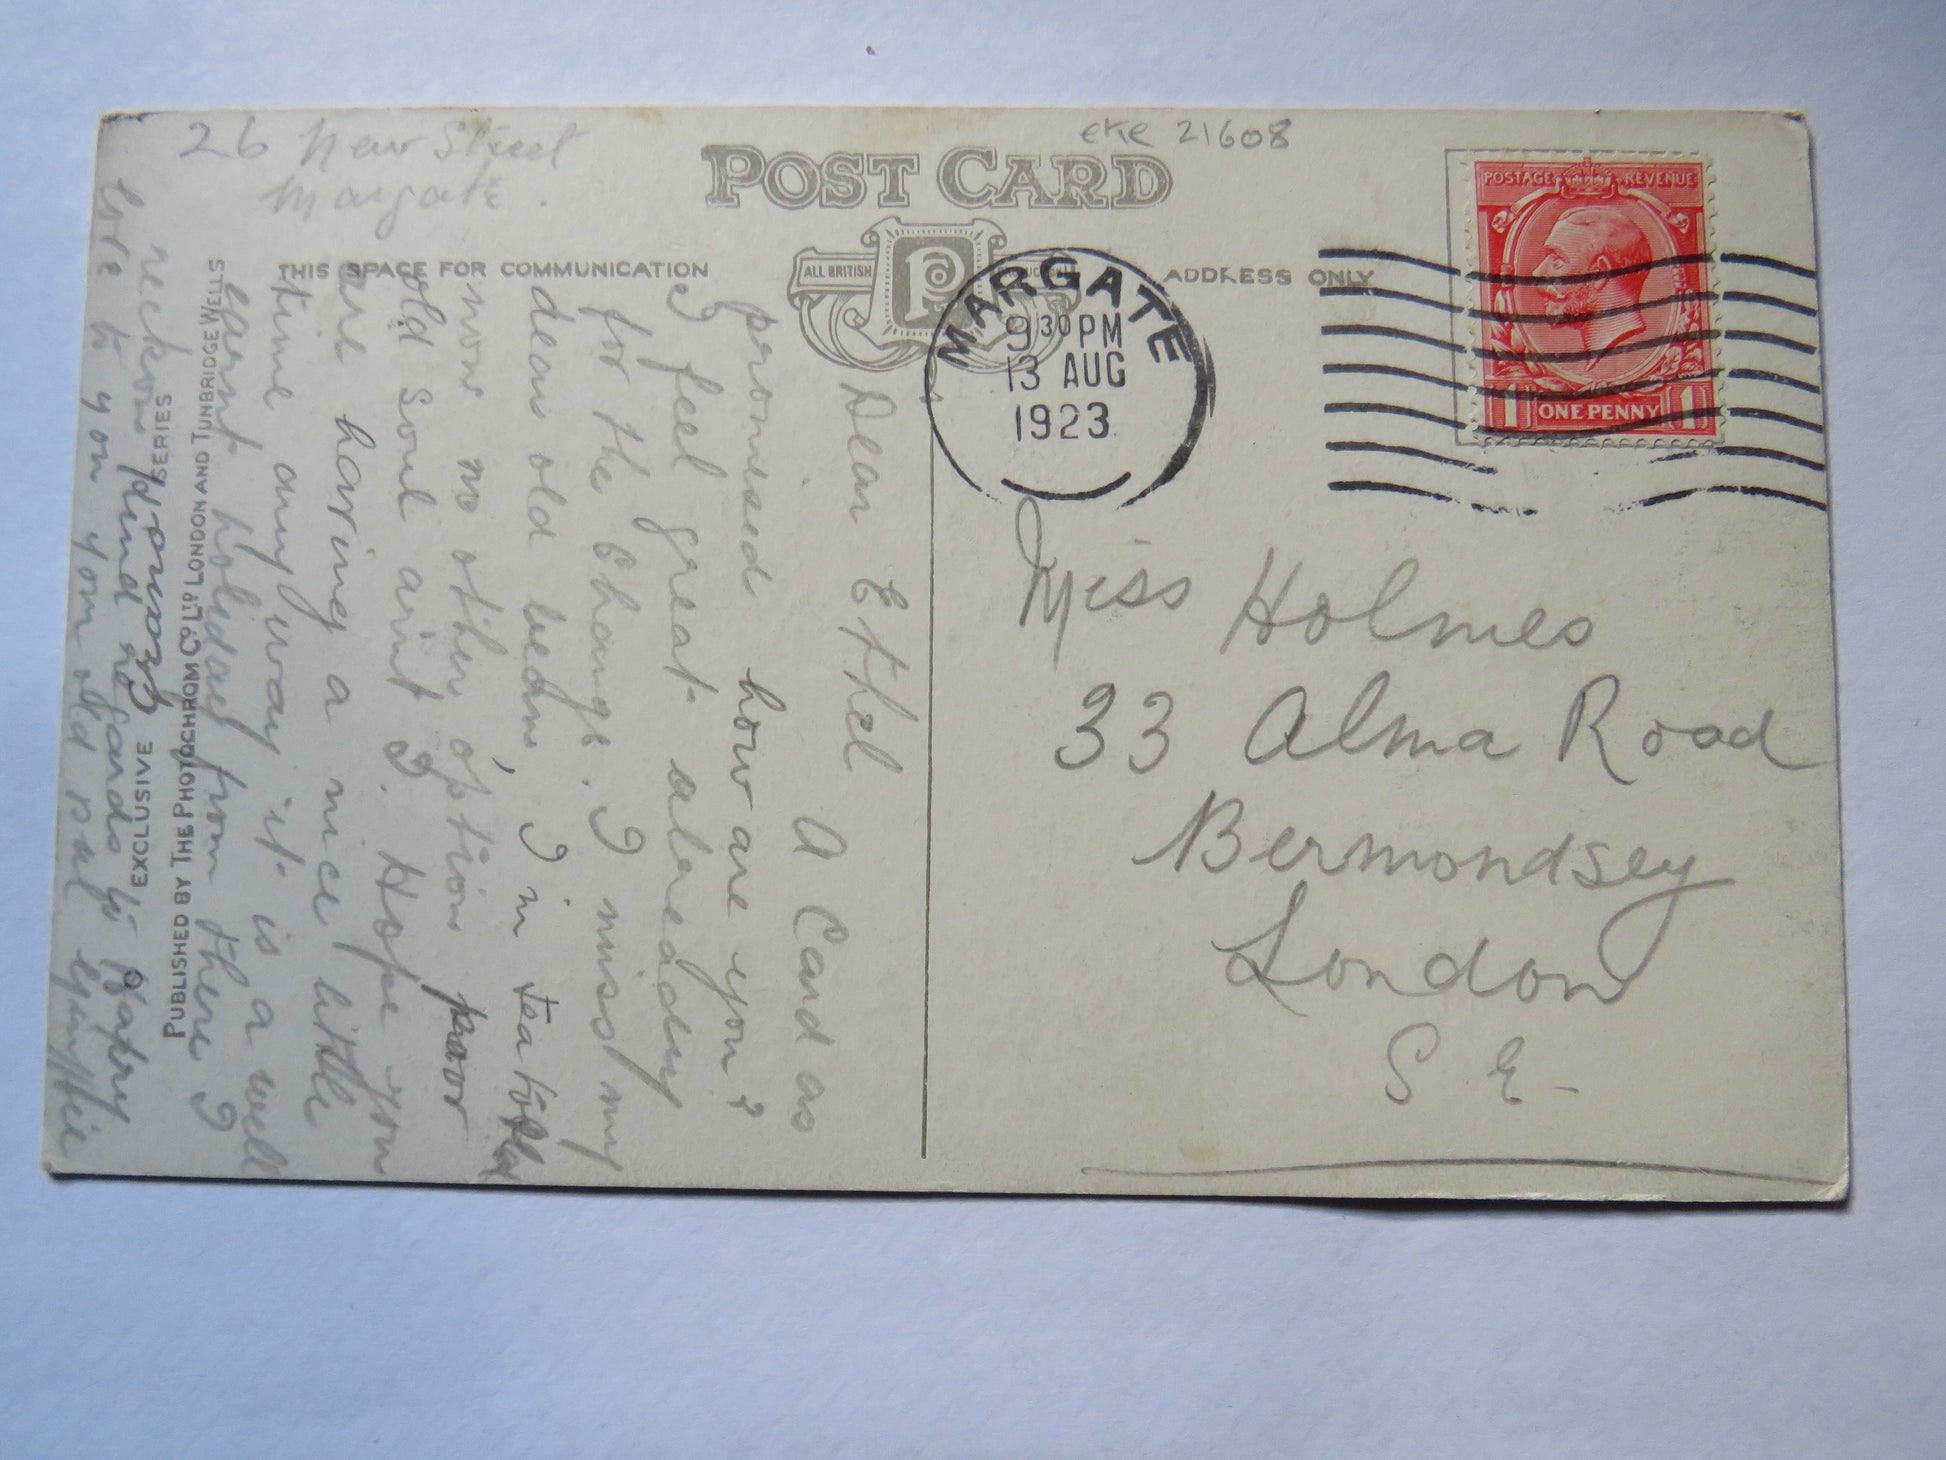 26 New Street
Margate.
POST CARD
eke 21608
THIS SPACE FOR COMMUNICATION
ALL BRITISH
ADDRESS ONLY
POSTAGE REVENUE
1 ONE PENNY 1
MARGATE
9 30 PM
13 AUG
1923
Miss Holmes
33 Alma Road
Bermondsey
London
S E -
Dear Ethel
A Card as
promised how are you?
I feel great already
for the Change. I miss my
dear old bedn, I in tea told
now no other option poor
old soul aint I. Hope you
are having a nice little
time anyway it is a well
earnt holiday from there I
reckon regards to
love to you your old pal
EXCLUSIVE SERIES
PUBLISHED BY THE PHOTOCHROM CO LTD LONDON AND TUNBRIDGE WELLS